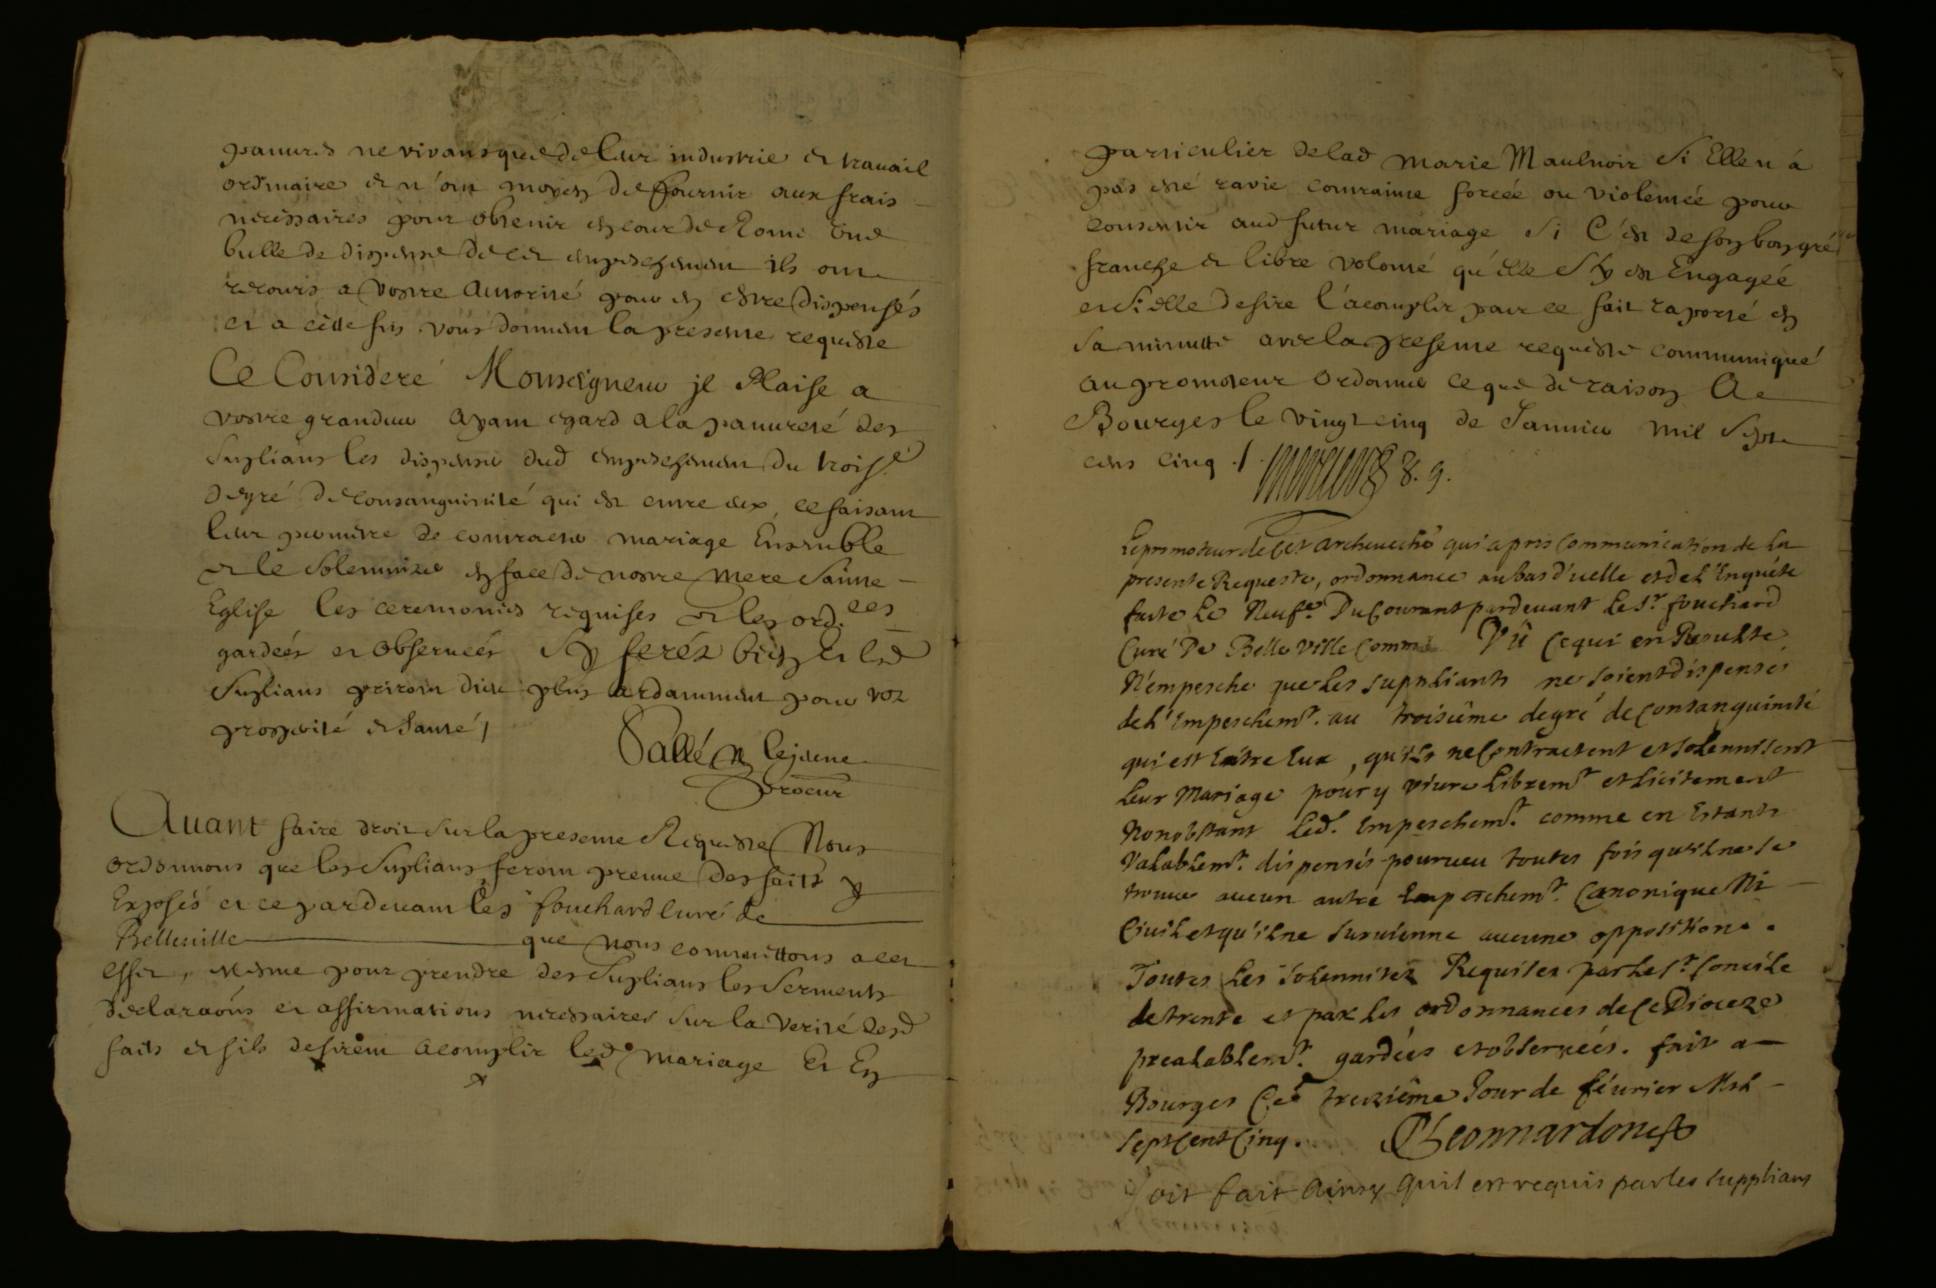 pauures ne vivans que de leur industrie et travail
ordinaire et n'ont moyen de fournir aux frais
necessaires pour obtenir en cour de Rome une
bulle de dispense de cet empeschement ils ont
recours a vostre autorité pour en estre dispensés
et a cette fin vous donnent la presente requeste
Ce Consideré Monseigneur il Plaise a
vostre grandeur ayant egard a la pauureté des
suplians les dispenser dud empeschement du troise
degré de consanguinité qui est entre eux, ce faisant
leur permettre de contracter mariage Ensemble
et le solemniser en face de nostre mere Sainte
Eglise les ceremonies requises et les ord.ces
gardeés et observeés Sy ferés bien et lesd
suplians priront dieu plus ardamment pour vos
prosperité et santé /
Pallé lejeune
procur
Avant faire droit sur la presente Requeste Nous
ordonnons que les Suplians feront preuve des faits y
Exposés et ce pardevant fouchard curé de
Belleville que nous committons a cet
effet, mesme pour prendre des Suplians les Serments
declaraōns et affirmations necessaires sur la verité desd
faits et sils desirent acomplir led mariage Et En
particulier de lad Marie Maulnoir Si Elle n'a
pas esté ravie contrainte forcée ou violentée pour
consentir aud futur mariage Si C'est de son bon gré
franche et libre volonté qu'elle s'y est Engagée
et si elle desire l'acomplir pour ce fait raporté en
sa minutte avec la presente requeste communiqué
au promoteur ordonner ce que de raison A
Bourges le vingt cinq de Janvier mil Sept
cens cinq ./. v. g.
Le promoteur de Cet archeueché qui a pris Communication de la
presente Requeste, ordonnance au bas d'icelle et de l'Enquéte
faite Le Neufe. Du Courant pardeuant Le Sr. fouchard
Curé De Belleville Commre Vû Ce qui en Resulte
N'empesche que Les supphiants ne soient dispensés
de l'Empeschemt. au troisiéme degré de Consanguinité
qui est Entre Eux, qu'ils ne Contractent et solennisent
Leur Mariage pour y viure Libremt. et Licitement
Nonobstant Led. Empeschemt. comme en Estants
Valablemt. dispensés pourueu toutes fois qu'il ne se
trouue aucun autre Empeschemt. Canonique Ni
Civil et qu'il ne suruienne aucune opposition.
Toutes Les solennitez Requises par Le St. Concile
de trente et par les ordonnances de Ce Dioceze
prealablemt. gardées et obseruées. fait a
Bourges Ce treziéme Jour de féurier Mil
sept Cent Cinq.
Soit fait Ainsy Quil est requis par les supplians